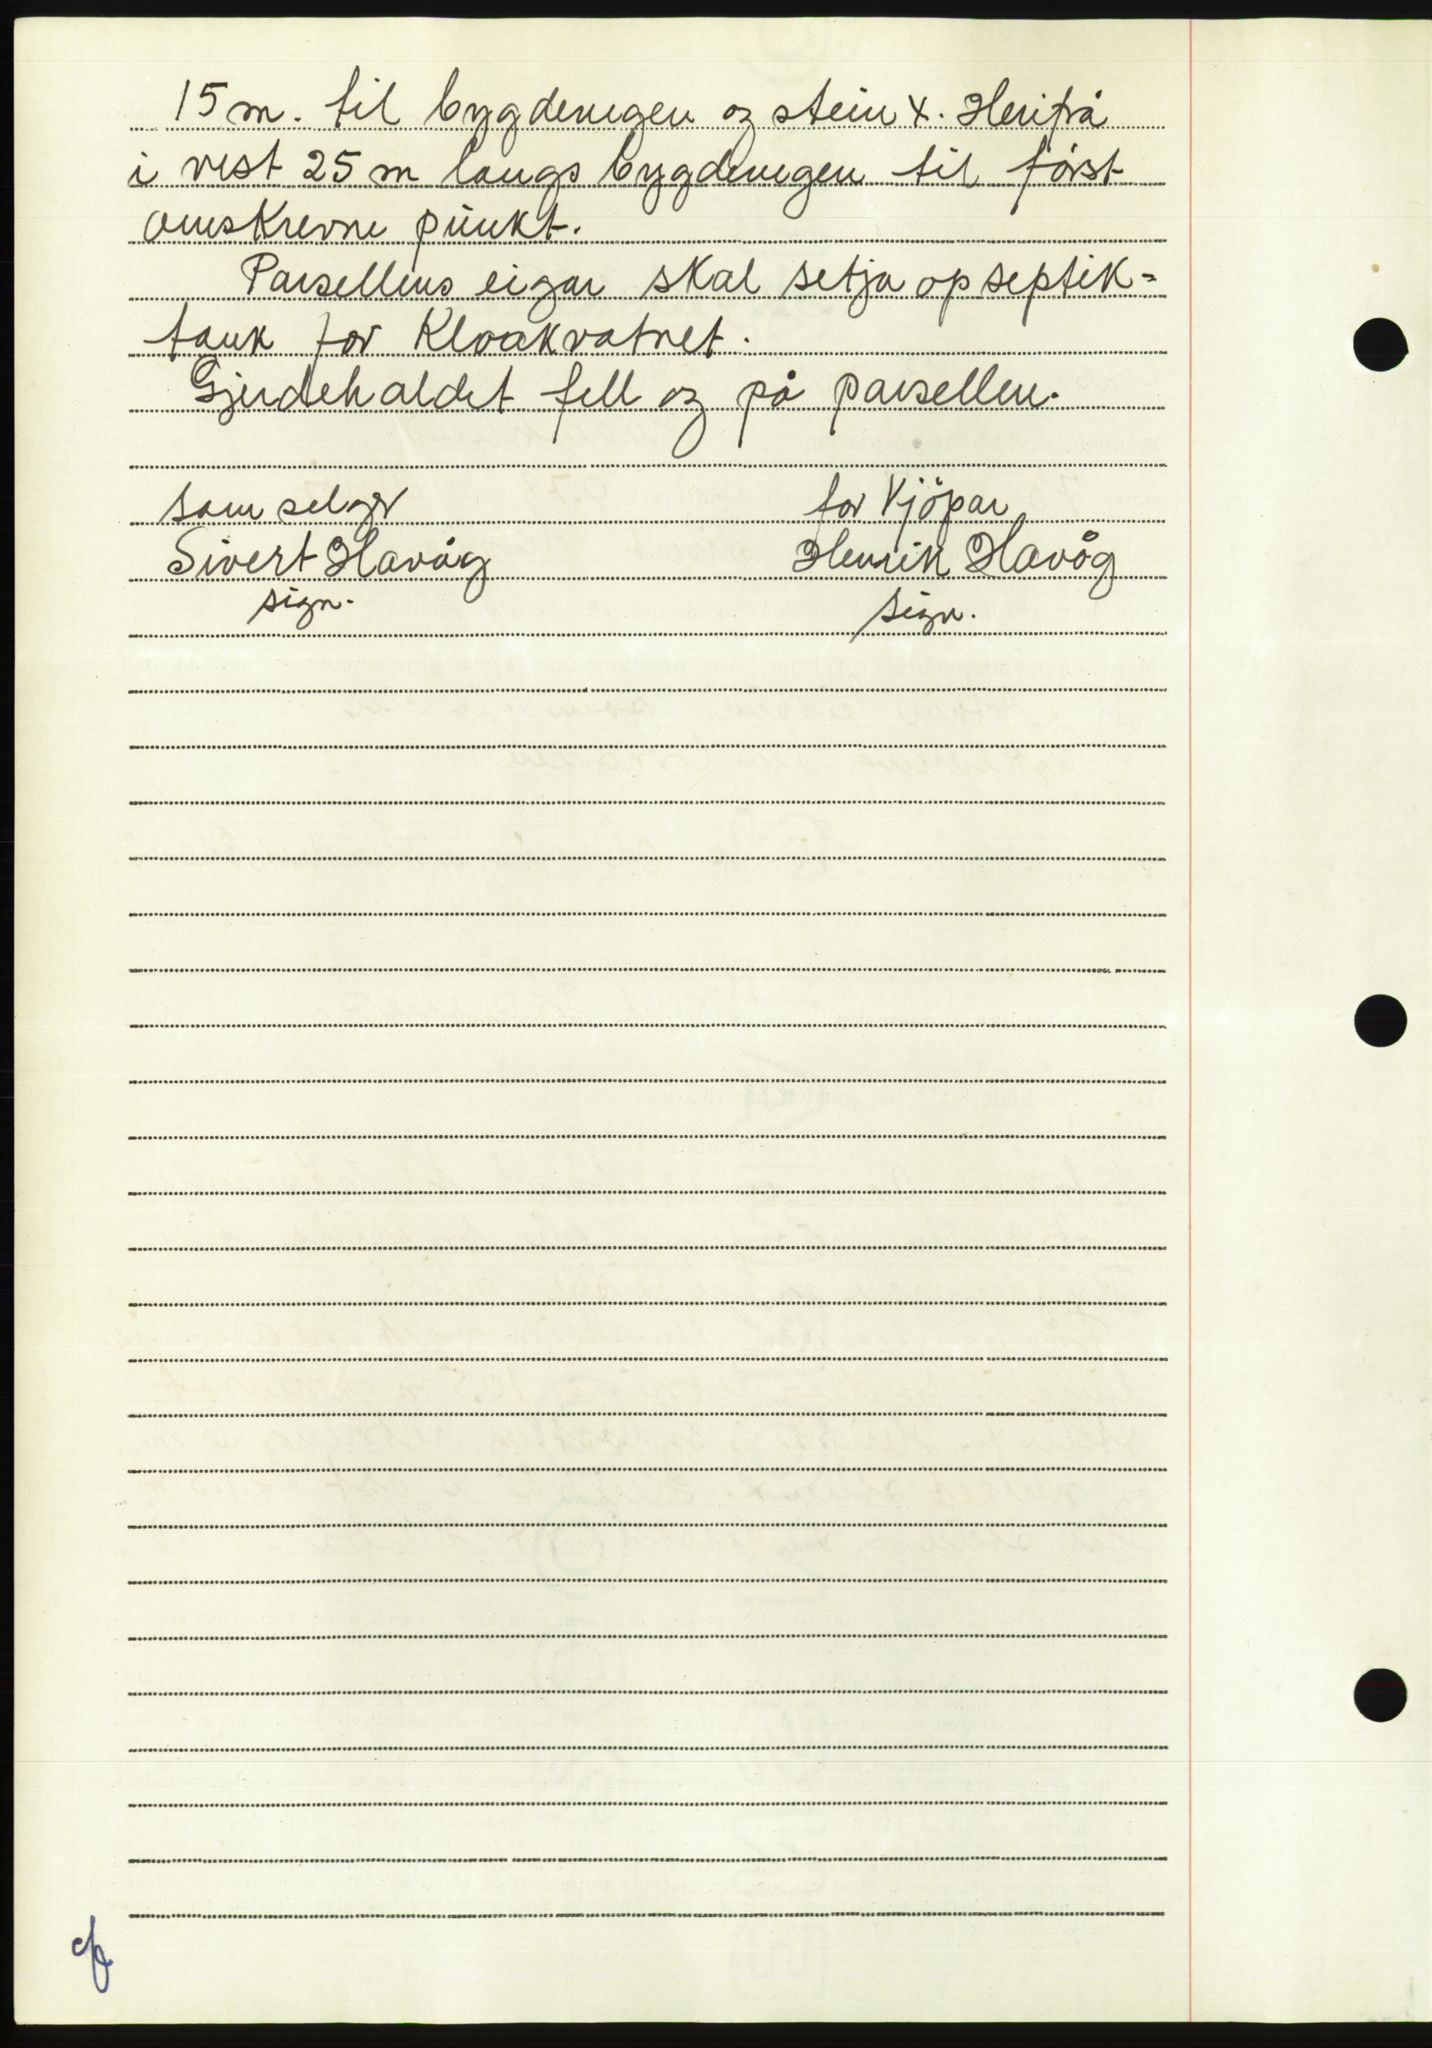 15 m. til bygdevegen og stein x. Herifrå
i vest 25 m langs bygdevegen til först
omskrevne punkt.
Parsellens eigar skal setja op septik=
tank for Kloakvatnet.
Gjerdehaldet fell og på parsellen.
som selger
for Kjöpar
Sivert Havåg
Henrik Havåg
sign.
sign.